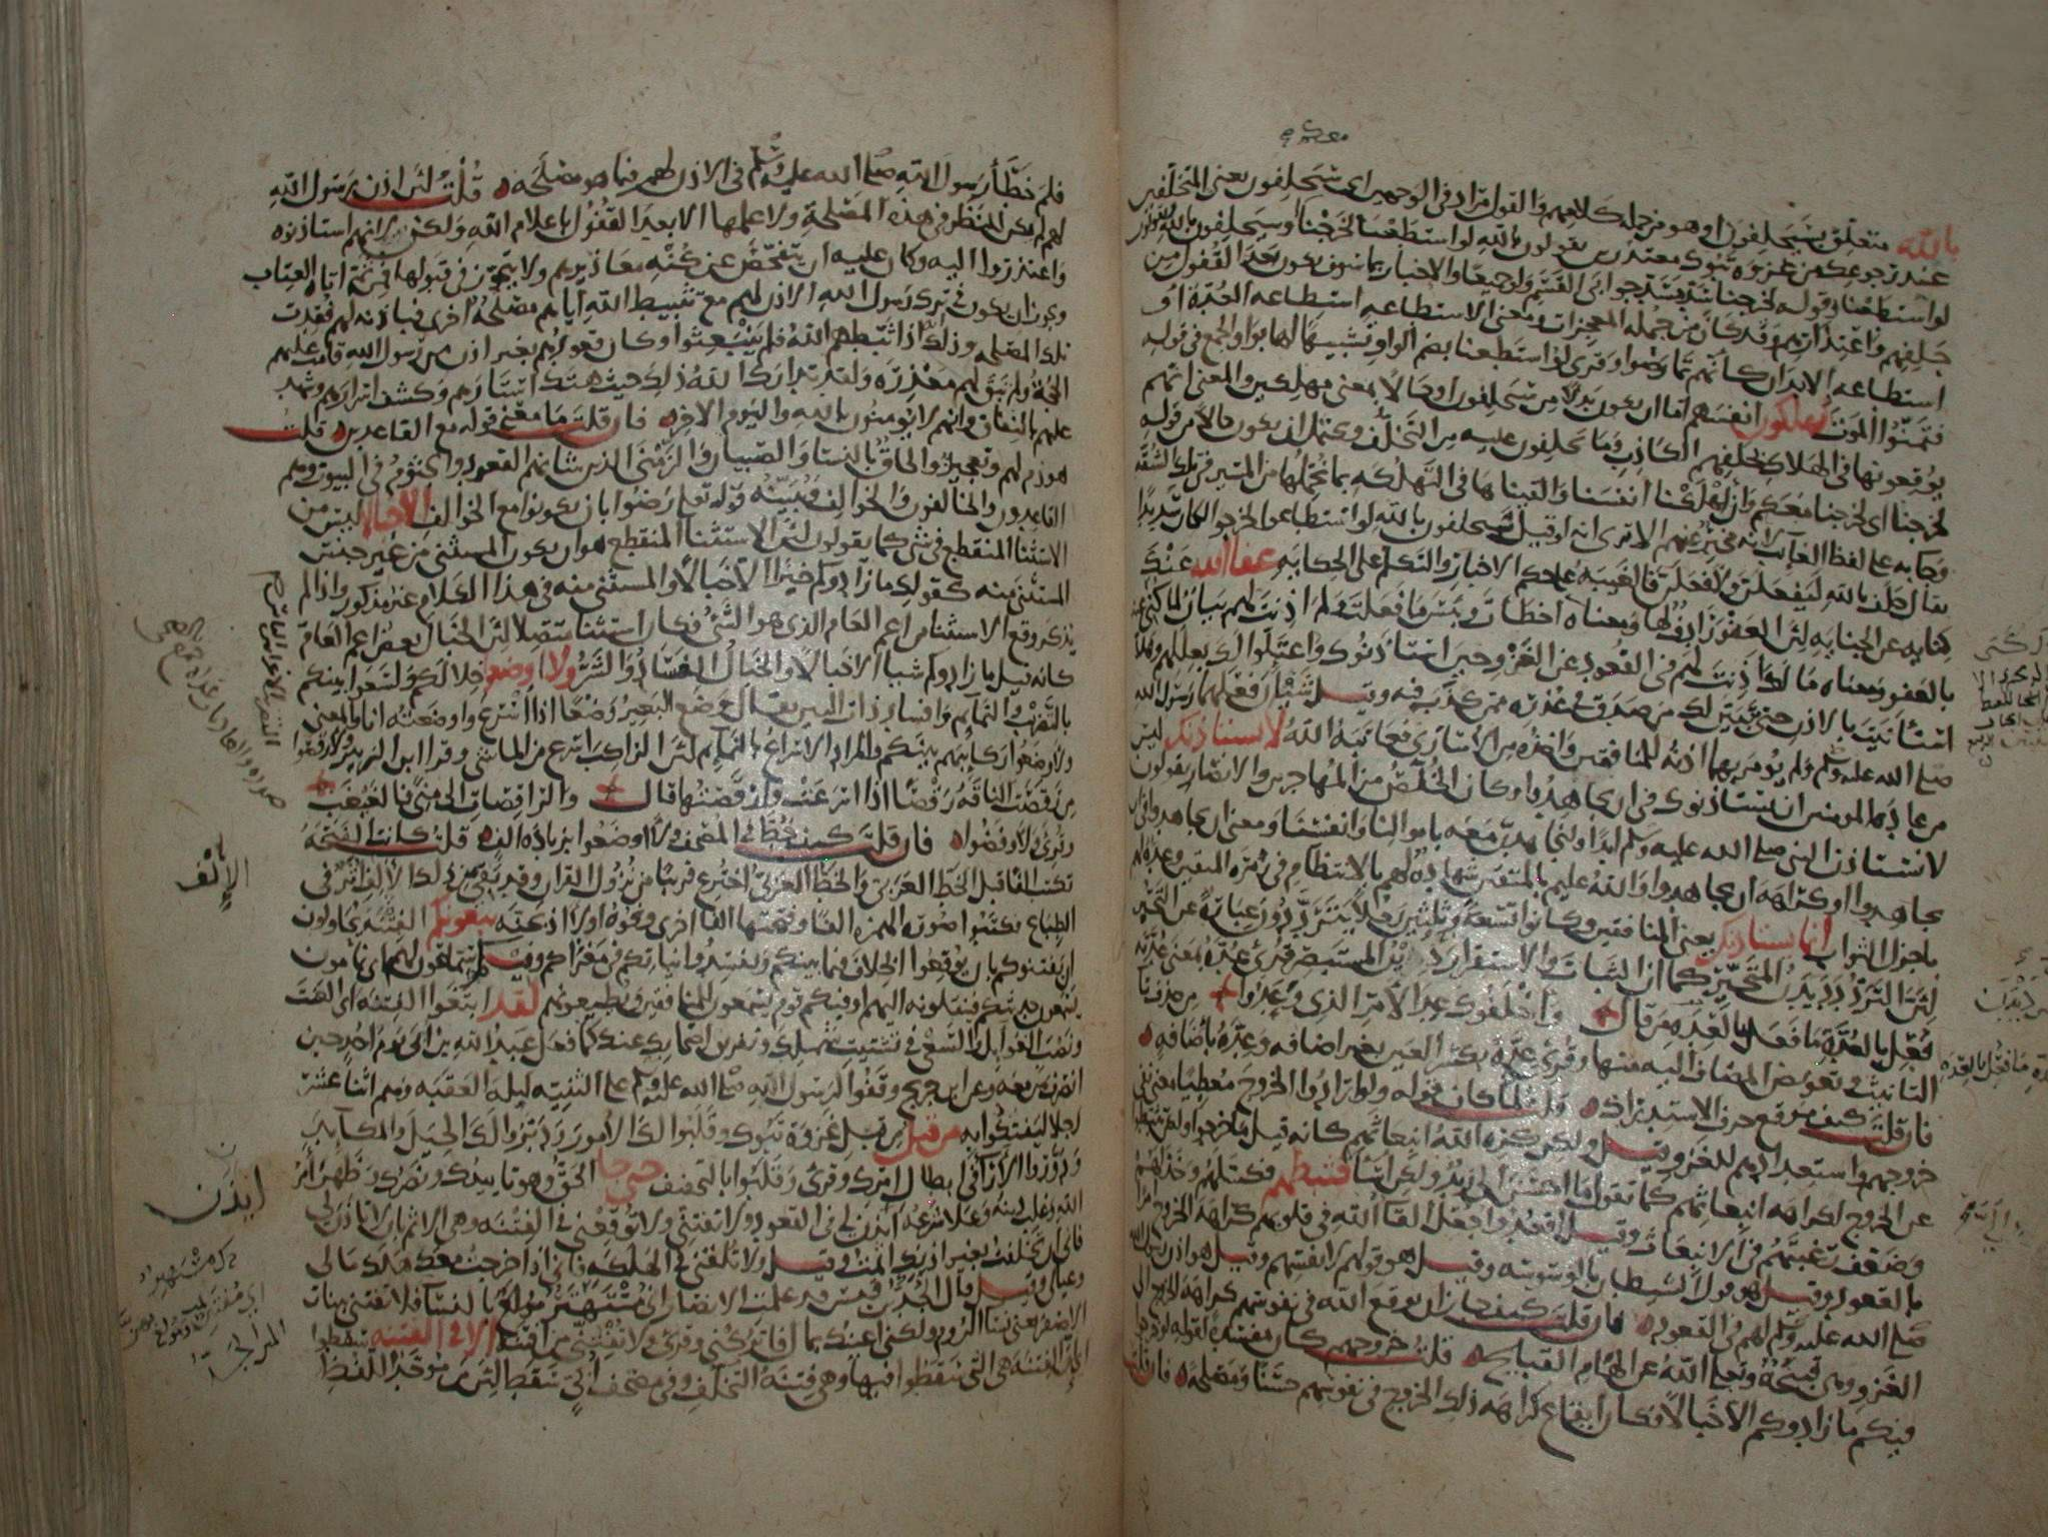 بالله متعلق بسيحلفون او هو من جملة كلامهم والقول مراد في الوجهين اى سيحلفون يعنى المتخلفين
عند رجوعك من غزوة تبوك معتذرين يقولون بالله لو استطعنا لخرجنا او سيحلفون بالله يقولون
لو استطعنا وقوله لخرجنا سد مسد جوابى القسم ولو جميعا والاخبار بما سوف يكون بعد القفول من
حلفهم واعتذارهم وقد كان من جملة المعجزات ومعنى الاستطاعه استطاعه العدة او
استطاعه الابدان كانهم تمارضوا وقرى لو استطعنا بضم الواو تشبيها لها بواو الجمع فى قوله
فتمنوا الموت يهلكون انفسهم اما ان يكون بدلا من سيحلفون او حالا بمعنى مهلكين والمعنى انهم
يوقعونها فى الهلاك بحلفهم الكاذب وما يحلفون عليه من التخلف ويحتمل ان يكون حالا من قوله
لخرجنا اى لخرجنا معكم وان اهلكنا انفسنا والقيناها فى التهلكه بما نحملها من المسير فى تلك الشقة
وجا به على لفظ الغائب لانه مخبر عنهم الا ترى انه لو قيل سيحلفون بالله لو استطاعوا لخرجوا لكان سديدا
يقال حلف بالله ليفعلن ولافعلن فالغيبه على حكم الاخبار والتكلم على الحكايه عفا الله عنك
كنايه عن الجنايه لان العفو رادف لها ومعناه اخطات وبئس ما فعلت ولم اذنت لهم بيان لما كنى عنه
بالعفو ومعناه مالك اذنت لهم فى القعود عن الغزو حين استاذنوك واعتلوا لك بعللهم وهلا
استانيت بالاذن حتى يتبين لك من صدق فى عذره ممن كذب فيه وقيل شيئان فعلهما رسول الله
صلى الله عليه وسلم ولم يؤمر بهما اذنه للمنافقين واخذه من الاسارى فعاتبه الله لا يستاذنك ليس
من عادة المومنين ان يستاذنوك فى ان يجاهدوا وكان الخلص من المهاجرين والانصار يقولون
لا نستاذن النبى صلى الله عليه وسلم ابدا ولنجاهدن معه باموالنا وانفسنا ومعنى ان يجاهدوا فى ان
يجاهدوا او كراهة ان يجاهدوا والله عليم بالمتقين شهادة لهم بالانتظام فى زمرة المتقين وعدة لهم
باجزل الثواب انما يستاذنك يعنى المنافقين وكانوا تسعة وثلثين رجلا يترددون عبارة عن التحير
لان التردد ديدن المتحير كما ان الثبات والاستقرار ديدن المستبصر قرئ عده بمعنى عدته
فعل بالعدة ما فعل بالعدة من قال واخلفوك عد الامر الذى وعدوا من حذف تا
التانيث وتعويض المضاف اليه منها وقرئ عدة بكسر العين بغير اضافه وعده باضافه
فان قلت كيف موقع حرف الاستدراك قلت لما كان قوله ولو ارادوا الخروج معطيا معنى نفى
خروجهم واستعدادهم للغزو قيل ولكن كره الله انبعاثهم كانه قيل ما خرجوا ولكن تثبطوا
عن الخروج لكراهة انبعاثهم كما تقول ما احسن الى زيد ولكن اسا فثبطهم فكسلهم وخذلهم
وضعف رغبتهم فى الانبعاث وقيل اقعدوا جعل القا الله فى قلوبهم كراهة الخروج امرا
بالقعود وقيل هو قول الشيطان بالوسوسه وقيل هو قولهم لانفسهم وقيل هو اذن رسول الله
صلى الله عليه وسلم لهم فى القعود فان قلت كيف جاز ان يوقع الله فى نفوسهم كراهة الخروج الى
الغزو وهى قبيحة وتعالى الله عن الهام القبايح قلت خروجهم كان مفسدة لقوله لو خرجوا
فيكم ما زادوكم الا خبالا فكان ايقاع كراهة ذلك الخروج فى نفوسهم حسنا ومصلحة فان قلت
فلم خطأ رسول الله صلى الله عليه وسلم فى الاذن لهم فيما هو مصلحة قلت لان اذن رسول الله
لهم لم يكن للنظر فى هذه المصلحة ولا علمها الا بعد القفول باعلام الله ولكن لانهم استاذنوه
واعتذروا اليه وكان عليه ان يتفحص عن كنه معاذيرهم ولا يتجوز فى قبولها فمن ثمة اتاه العتاب
ويجوز ان يكون فى ترك رسول الله الاذن لهم مع تثبيط الله اياهم مصلحة اخرى فباذنه لهم فقدت
تلك المصلحه وذلك اذا ثبطهم الله فلم ينبعثوا وكان قعودهم بغير اذن من رسول الله قامت عليهم
الحجة ولم تبق لهم معذرة ولقد تدارك الله ذلك حيث هتك استارهم وكشف اسرارهم وشهد
عليهم بالنفاق وانهم لا يومنون بالله واليوم الاخر فان قلت ما معنى قوله مع القاعدين قلت
هو ذم لهم وتعجيز والحاق بالنسا والصبيان والزمنى الذين شانهم القعود والجثوم فى البيوت وهم
القاعدون والخالفون والخوالف ويبينه قوله تعالى رضوا بان يكونوا مع الخوالف الا خبالا ليس من
الاستثنا المنقطع فى شى كما يقولون لان الاستثنا المنقطع هو ان يكون المستثنى من غير جنس
المستثنى منه كقولك ما زادوكم خيرا الا خبالا والمستثنى منه فى هذا الكلام غير مذكور واذا لم
يذكر وقع الاستثنا من اعم العام الذى هو الشئ فكان استثنا متصلا لان الخبال بعض اعم العام
كانه قيل ما زادوكم شيا الا خبالا والخبال الفساد والشر ولا اوضعوا خلالكم ولسعوا بينكم
بالتضريب والنمائم وافساد ذات البين يقال وضع البعير وضعا اذا اسرع واوضعته انا والمعنى
ولاوضعوا ركائبهم بينكم والمراد الاسراع بالنمائم لان الراكب اسرع من الماشى وقرا ابن الزبير ولارقصوا
من رقصت الناقة رقصا اذا اسرعت وارقصتها قال والراقصات الى منى فالغبغب
وقرئ ولاوفضوا فان قلت كيف خط فى المصحف ولا اوضعوا بزيادة الف قلت كانت الفتحة
تكتب الفا قبل الخط العربى والخط العربى اخترع قريبا من نزول القران وقد بقى من ذلك الالف اثر فى
الطباع فكتبوا صورة الهمزة الفا وفتحتها الفا اخرى ونحوه اولا اذبحنه يبغونكم الفتنة يحاولون
ان يفتنوكم بان يوقعوا الخلاف فيما بينكم ويفسدوا نياتكم فى مغزاكم وفيكم سماعون لهم اى نمامون
يسمعون حديثكم فينقلونه اليهم او فيكم قوم يسمعون للمنافقين ويطيعونهم لقد ابتغوا الفتنة اى العنت
ونصب الغوايل والسعى فى تشتيت شملك وتفريق اصحابك عنك كما فعل عبد الله بن ابى يوم احد حين
انصرف بمن معه وعن ابن جريج وقفوا لرسول الله صلى الله عليه وسلم على الثنيه ليلة العقبه وهم اثنا عشر
رجلا ليفتكوا به من قبل من قبل غزوة تبوك وقلبوا لك الامور ودبروا لك الحيل والمكايد
ودوروا الارا فى ابطال امرك وقرئ وقلبوا بالتخفيف حتى جا الحق وهو تاييدك ونصرك وظهر امر
الله وغلب دينه وعلا شرعه ائذن لى فى القعود ولا تفتنى ولا توقعنى فى الفتنه وهى الاثم بان لا تاذن لى
فانى ان تخلفت بغير اذنك اثمت وقيل ولا تلقنى فى الهلكه فانى اذا خرجت معك هلك مالى
وعيالى وقيل قال الجد بن قيس قد علمت الانصار انى مستهتر مولع بالنسا فلا تفتنى ببنات
الاصفر يعنى نسا الروم ولكنى اعينك بمال فاتركنى وقرئ ولا تفتنى من افتنه الا فى الفتنه سقطوا
اى ان الفتنة هى التى سقطوا فيها وهى فتنة التخلف وفى مصحف ابى سقط لان من موحد اللفظ
الالف
ايذن